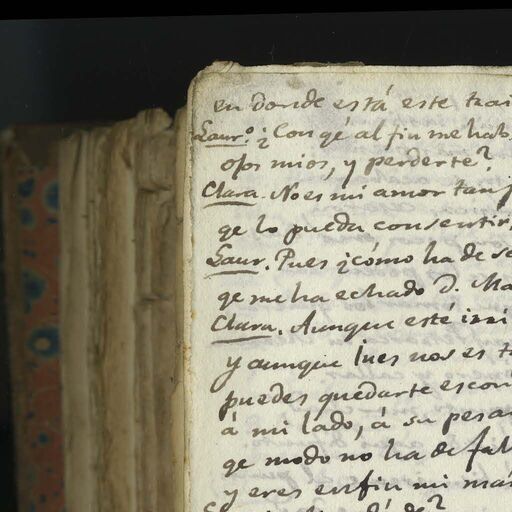 en donde está este trai
Laur.º ¿Con qé al fin me hab
ojos mios, y perderte?
Clara. No es mi amor tan f
qe lo pueda consentir.
Laur. Pues ¿cómo ha de se
qe me ha echado D. Ma
Clara. Aunque esté irri
y aunque Ines nos es t
puedes quedarte escon
á mi lado, á su pesar
qe modo no ha de fal
y eres en fin mi ma